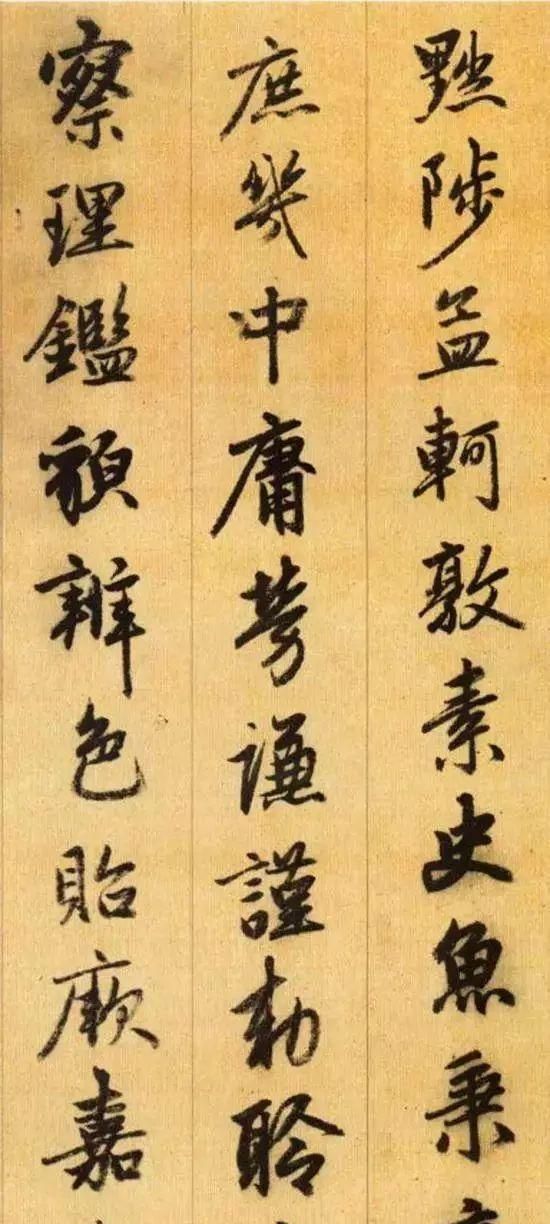 黜陟孟軻敦素史魚秉
庶幾中庸勞謙謹勅聆
察理鑑貌辨色貽厥嘉